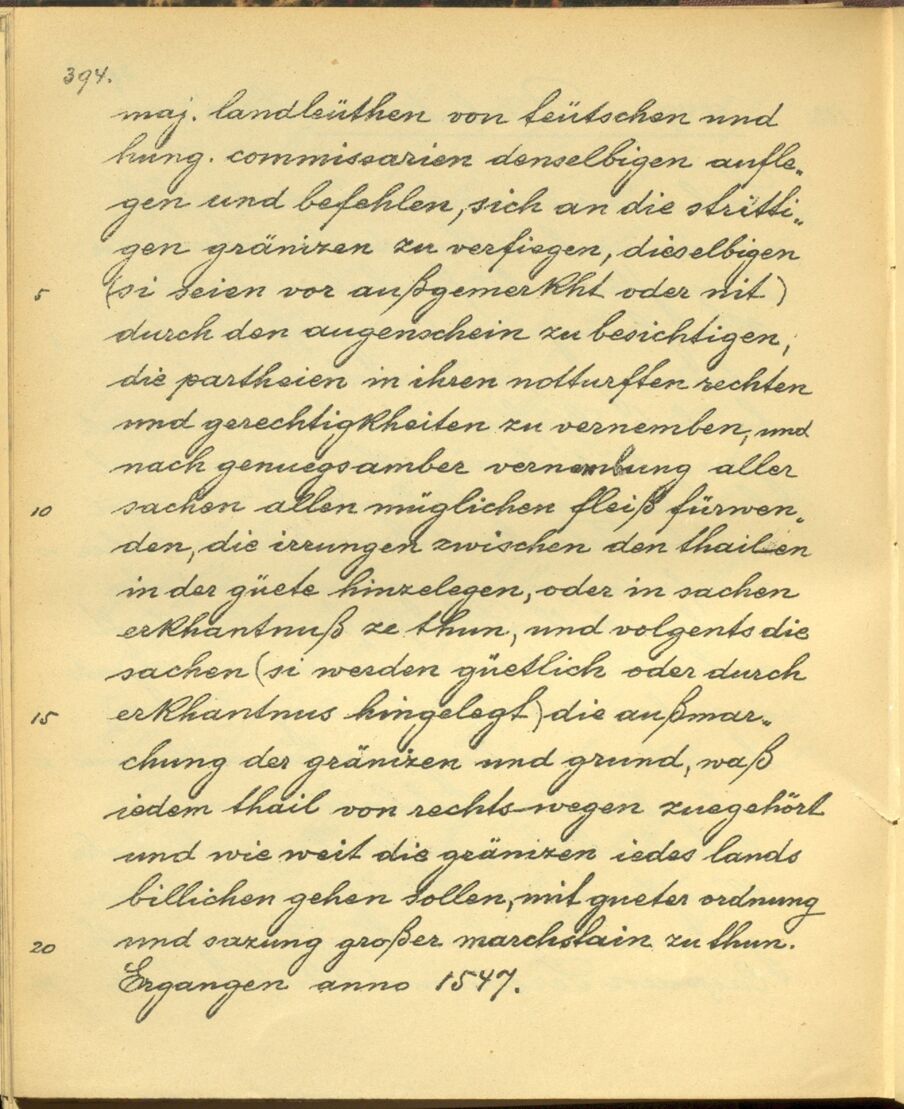 394.
maj. landleüthen von teütschen und
hung. commissarien denselbigen aufle„
gen und befehlen, sich an die stritti„
gen gränizen zu verfiegen, dieselbigen
5 (si seien vor außgemerkht oder nit)
durch den augenschein zu besichtigen,
die partheien in ihren notturften rechten
und gerechtigkheiten zu vernemben, und
nach genuegsamber vernembung aller
10 sachen allen müglichen fleiß fürwen„
den, die irrungen zwischen den thailen
in der güete hinzelegen, oder in sachen
erkhantnuß ze thun, und volgents die
sachen (si werden güetlich oder durch
15 erkhantnus hingelegt) die außmar„
chung der gränizen und grund, waß
iedem thail von rechts wegen zuegehört
und wie weit die gränizen iedes lands
billichen gehen sollen, mit gueter ordnung
20 und sazung großer marchstain zu thun.
Ergangen anno 1547.